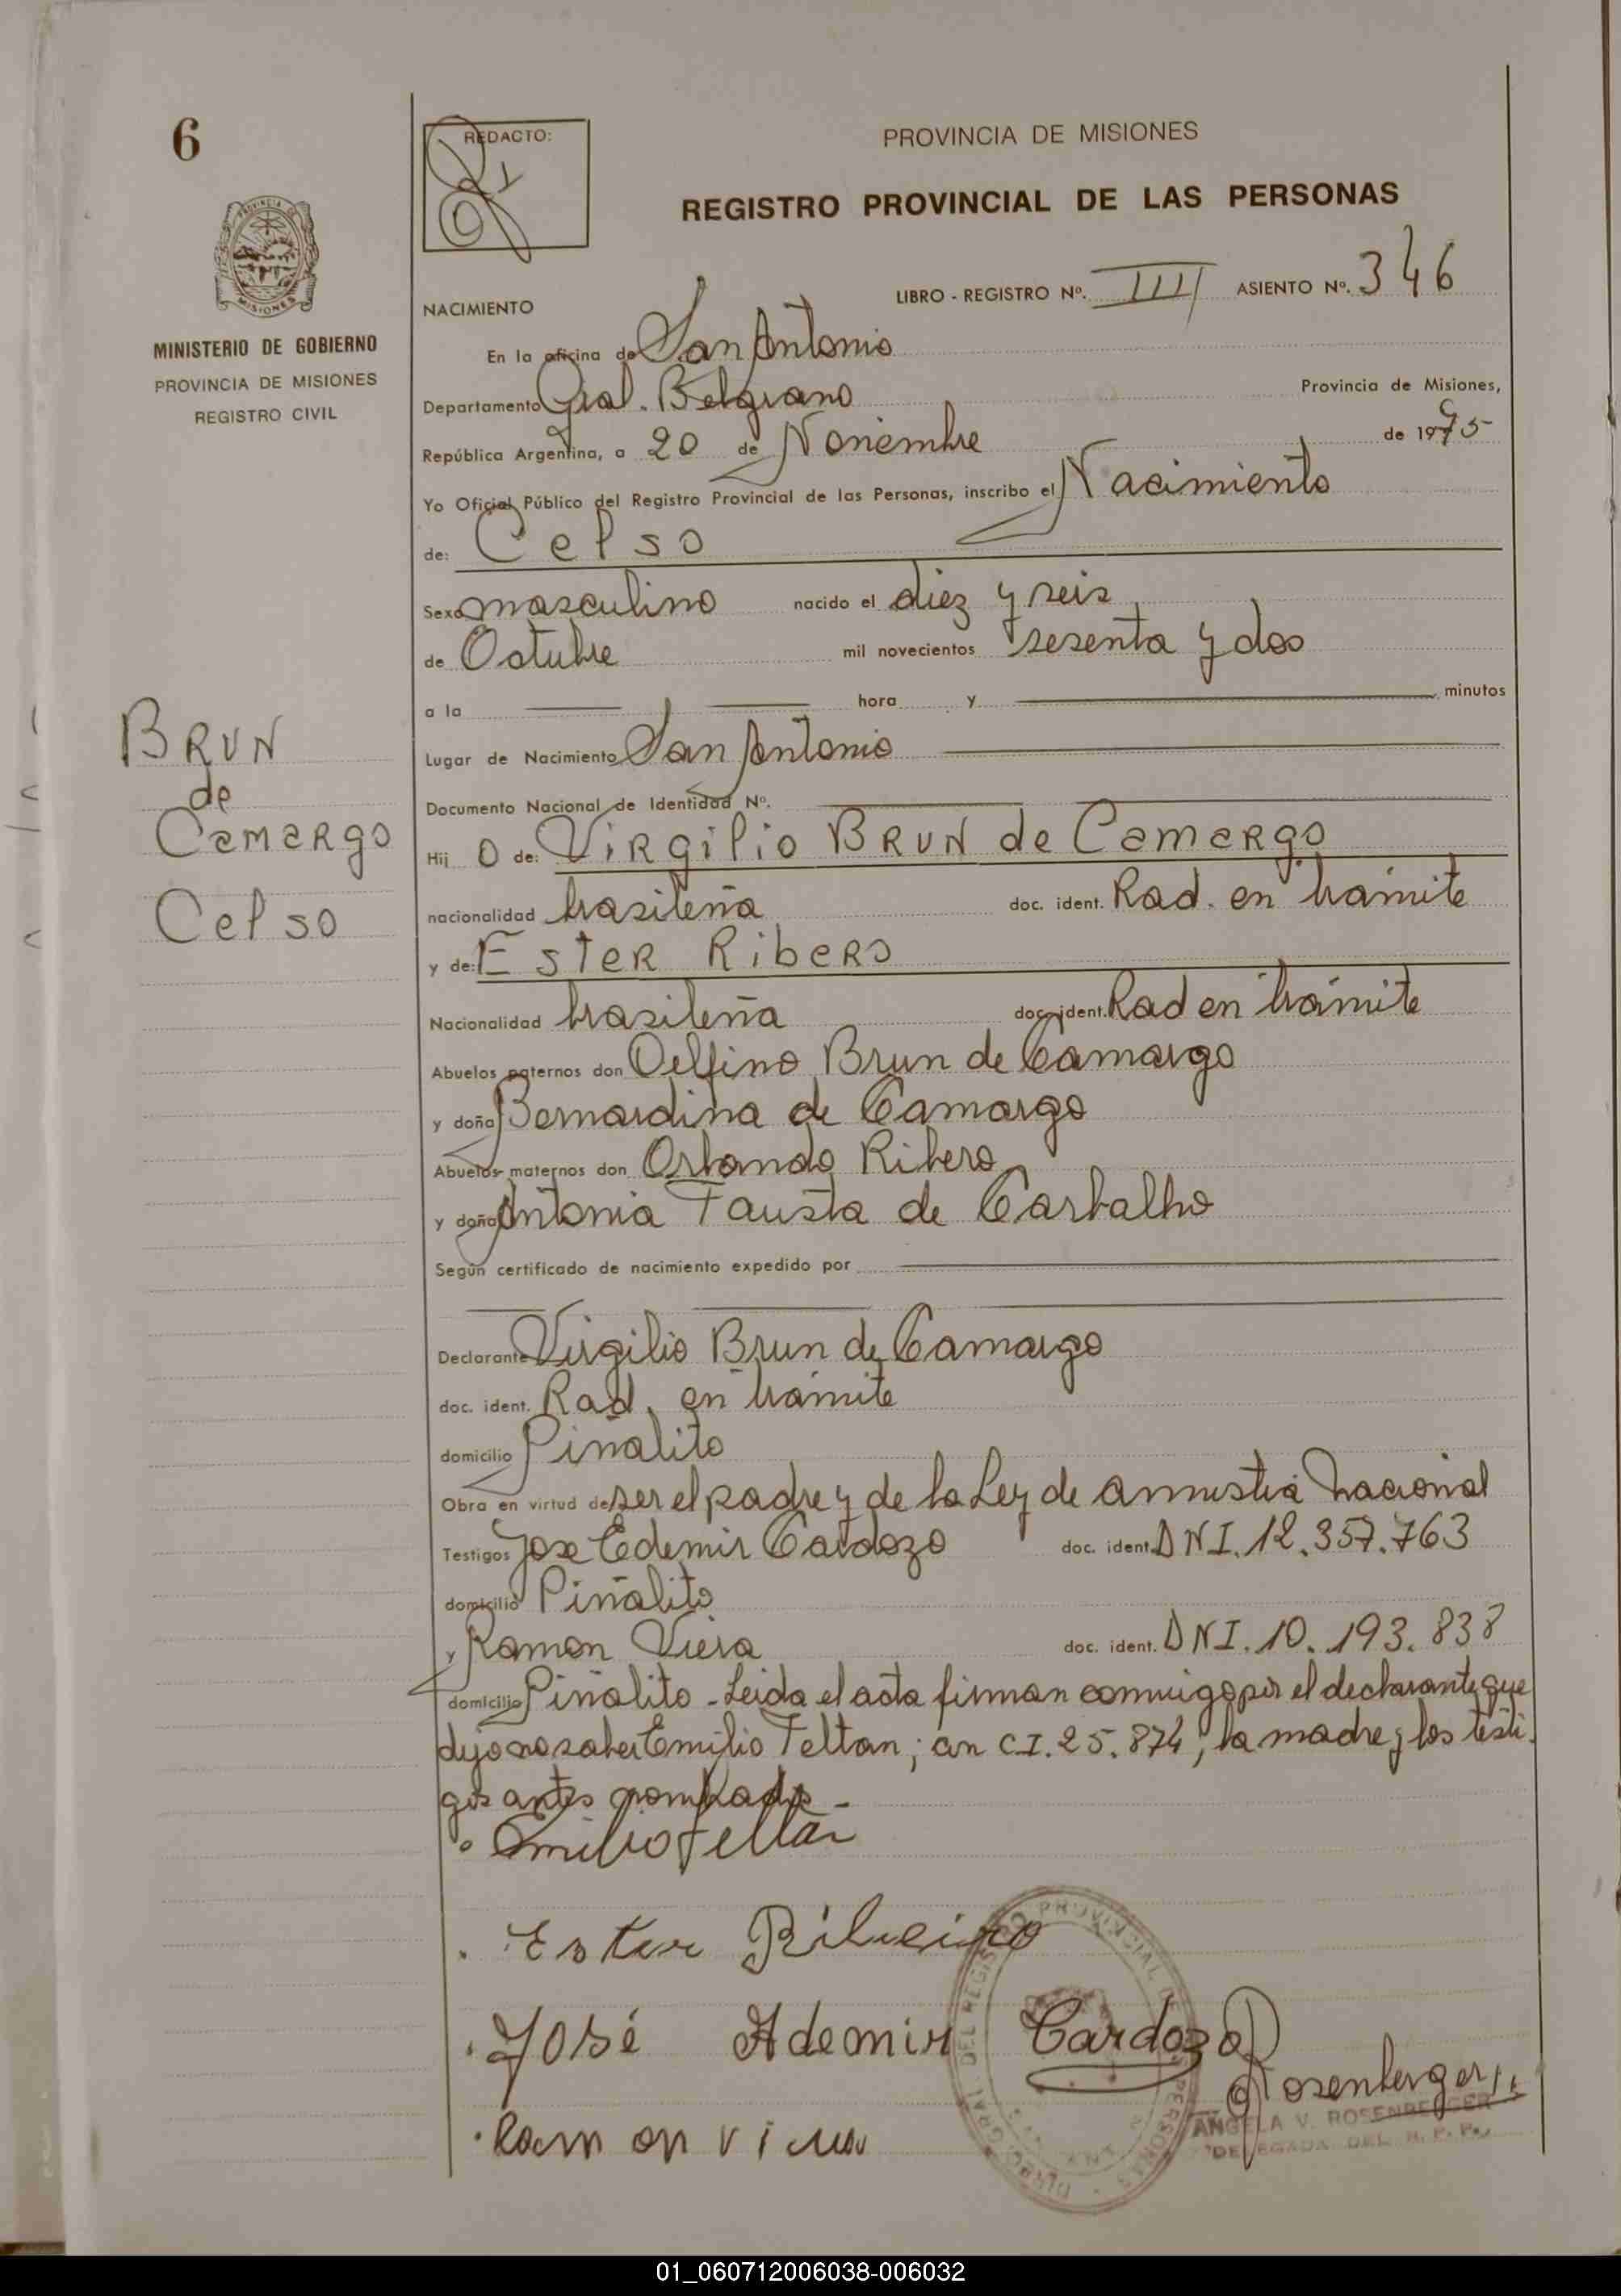 6
REDACTO:
PROVINCIA DE MISIONES
REGISTRO PROVINCIAL DE LAS PERSONAS
LIBRO - REGISTRO Nº. III ASIENTO Nº. 346
NACIMIENTO
MINISTERIO DE GOBIERNO
PROVINCIA DE MISIONES
REGISTRO CIVIL
En la oficina de San Antonio
Departamento Gral. Belgrano Provincia de Misiones,
República Argentina, a 20 de Noviembre de 1975
Yo Oficial Público del Registro Provincial de las Personas, inscribo el Nacimiento
de: Celso
Sexo masculino nacido el diez y seis
de Octubre mil novecientos sesenta y dos
a la hora y minutos
Lugar de Nacimiento San Antonio
Documento Nacional de Identidad Nº.
BRUN
de
Camargo
Celso
Hij o de: Virgilio BRUN de Camargo
nacionalidad brasileña doc. ident. Rad. en trámite
y de: Ester Ribero
Nacionalidad brasileña doc. ident. Rad en trámite
Abuelos paternos don Delfino Brun de Camargo
y doña Bernardina de Camargo
Abuelos maternos don Orlando Ribero
y doña Antonia Fausta de Carbalho
Según certificado de nacimiento expedido por
Declarante Virgilio Brun de Camargo
doc. ident. Rad. en trámite
domicilio Piñalito
Obra en virtud de ser el padre y de la Ley de amnistia nacional
Testigos Jose Edemir Cardozo doc. ident. DNI. 12.357.763
domicilio Piñalito
y Ramon Viera doc. ident. DNI. 10.193.838
domicilio Piñalito - Leida el acta firman conmigo por el declarante que
dijo no saber Emilio Feltan; con C.I. 25.874, la madre y los testi-
gos antes nombrados -
Emilio Feltan
Ester Ribeiro
José Ademir Cardozo
Rosenberger
Ramon viera
ANGELA V. ROSENBERGER
DELEGADA DEL R. P. P.
01_060712006038-006032